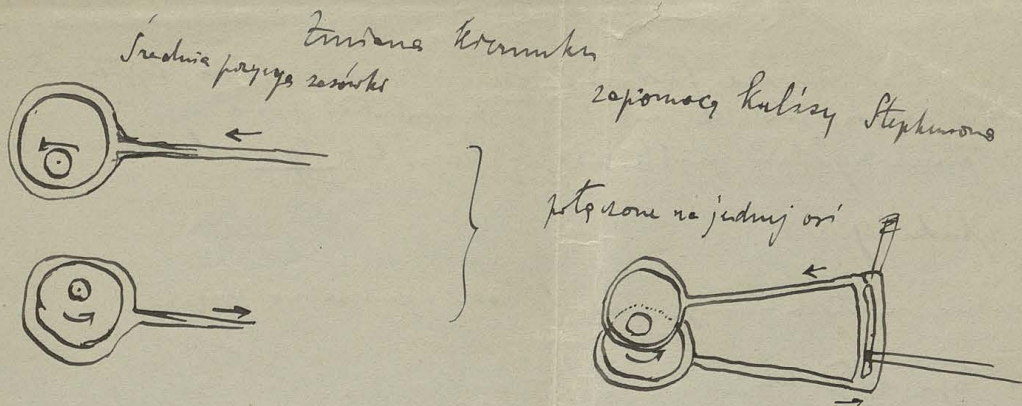 Zmiana kierunku
Średnia pozycja zasówki
zapomocą kulisy Stephensona
połączone na jednej osi